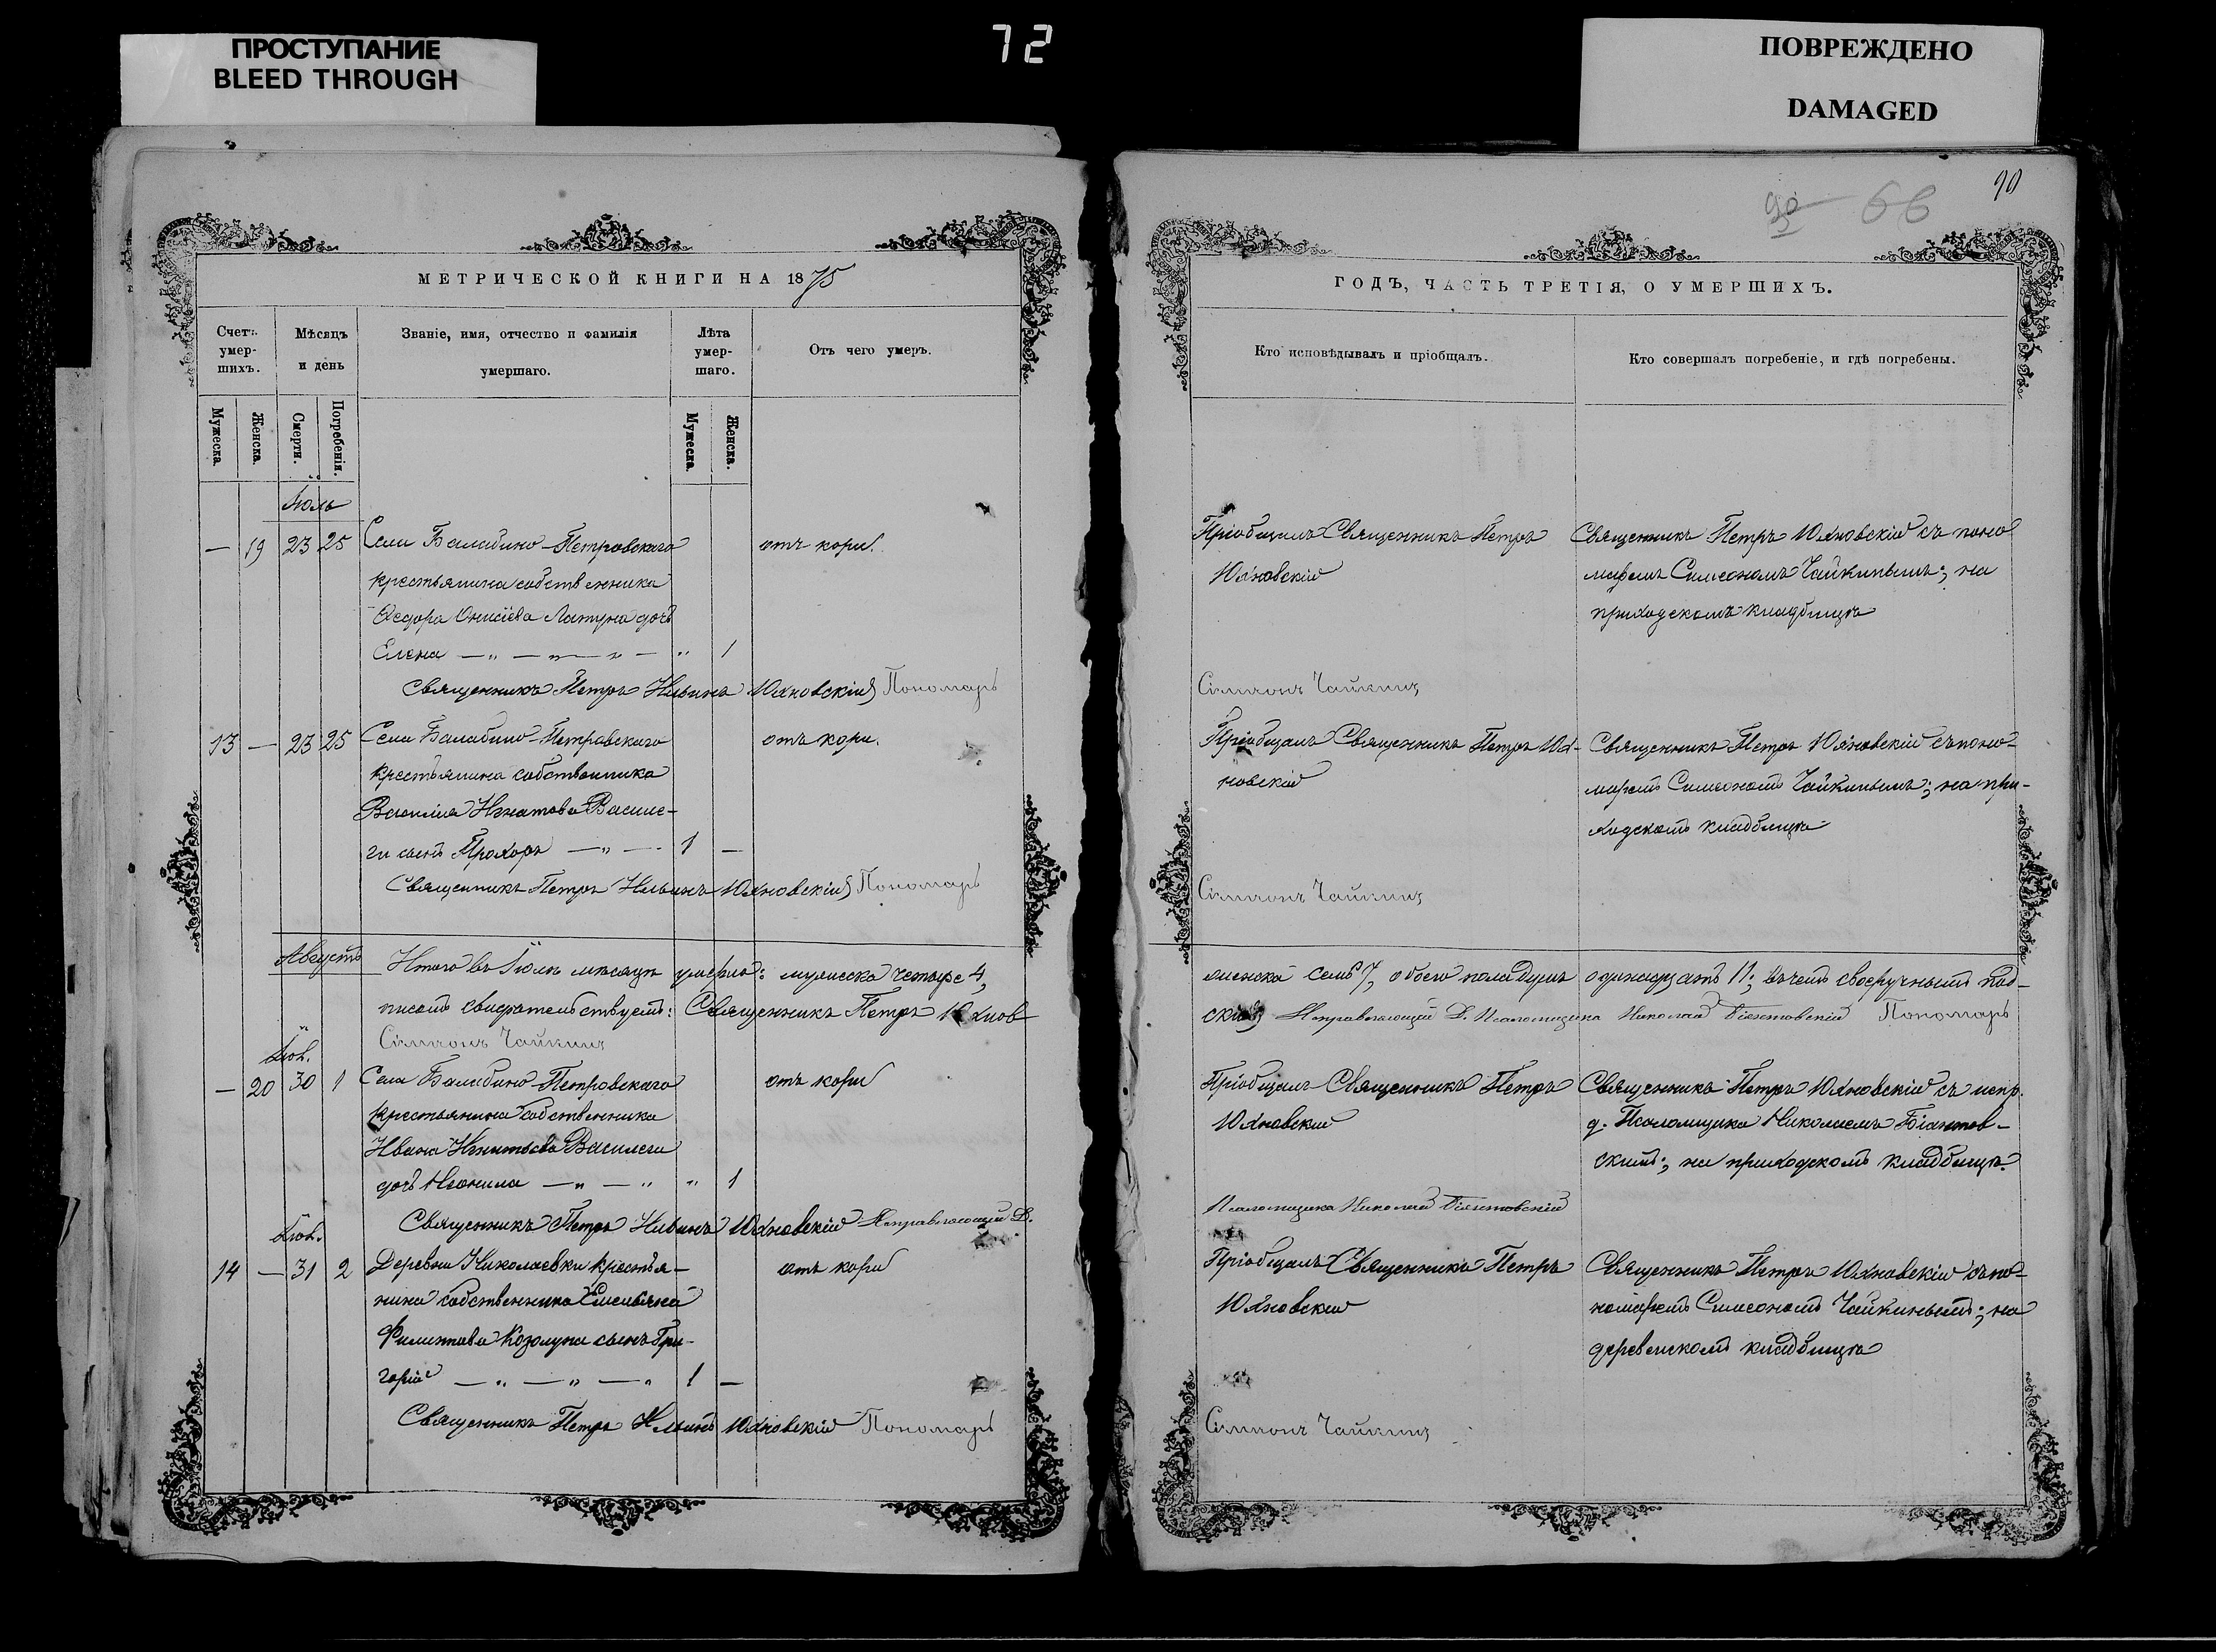 ПРОСТУПАНИЕ
BLEED THROUGH
72
ПОВРЕЖДЕНО
DAMAGED
90
90 66
МЕТРИЧЕСКОЙ КНИГИ НА 1875
Счетъ умер-шихъ.
Мѣсяцъ и день
Званіе, имя, отчество и фамилія умершаго.
Лѣта умер-шаго.
Отъ чего умеръ.
Мужеска.
Женска.
Смерти.
Погребенія.
Мужеска.
Женска.
Іюль
— 19 23 25 Села Балабино-Петровскаго отъ кори.
крестьянина собственника
Ѳедора Онисіева Латуна дочь
Елена — „ — „ — „ — „ 1
Священникъ Петръ Ильинъ Юхновскій Пономарь
13 — 23 25 Села Балабино-Петровскаго отъ кори.
крестьянина собственника
Василія Игнатова Василе-
ги сынъ Прохоръ — „ — 1 —
Священникъ Петръ Ильинъ Юхновскій Пономарь
Августъ
Итого въ Іюлѣ мѣсяцѣ умерло: мужеска четыре 4,
писомъ свидѣтельствуемъ: Священникъ Петръ Юхнов-
Симеонъ Чайкинъ
Іюл.
— 20 30 1 Села Балабино-Петровскаго отъ кори
крестьянина собственника
Ивана Игнатьева Василега
дочь Неонила — „ — „ „ 1
Священникъ Петръ Ильинъ Юхновскій Исправляющій Д.
Іюл.
14 — 31 2 Деревни Николаевки крестья- отъ кори
нина собственника Емельяна
Филиппова Козолупа сынъ Гри-
горій — „ — „ — „ 1 —
Священникъ Петръ Ильинъ Юхновскій Пономарь
ГОДЪ, ЧАСТЬ ТРЕТІЯ, О УМЕРШИХЪ.
Кто исповѣдывалъ и пріобщалъ.
Кто совершалъ погребеніе, и гдѣ погребены.
Пріобщалъ Священникъ Петръ Священникъ Петръ Юхновскій съ поно
Юхновскій маремъ Симеономъ Чайкинымъ; на
приходскомъ кладбищѣ
Симеонъ Чайкинъ
Пріобщалъ Священникъ Петръ Юх- Священникъ Петръ Юхновскій съ поно-
новскій маремъ Симеономъ Чайкинымъ; на при-
ходскомъ кладбищѣ
Симеонъ Чайкинъ
женска семь 7, обоего пола душъ одинадцать 11; въ чемъ своеручнымъ под-
скій Исправляющій Д. Псаломщика Николай Пономарь
Пріобщалъ Священникъ Петръ Священникъ Петръ Юхновскій съ испр.
Юхновскій д. Псаломщика Николаемъ
скимъ; на приходскомъ кладбищѣ.
Псаломщика Николай
Пріобщалъ Священникъ Петръ Священникъ Петръ Юхновскій съ по-
Юхновскій номаремъ Симеономъ Чайкинымъ; на
деревенскомъ кладбищѣ
Симеонъ Чайкинъ